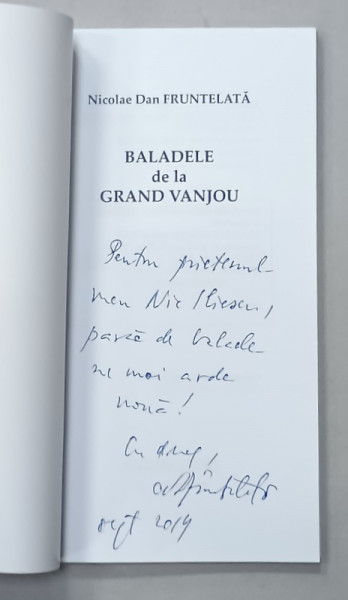 Nicolae Dan FRUNTELATĂ
BALADELE
de la
GRAND VANJOU
Pentru prietenul
meu Nic Iliescu,
parcă de balade
ne mai arde
nouă!
Cu drag,
sept 2014